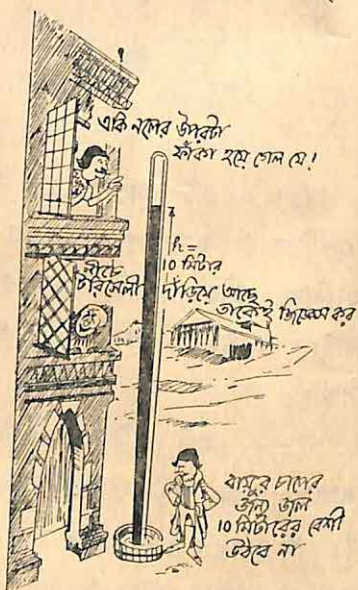 একি নলের উপরটা
ফাঁকা হয়ে গেল যে!
h =
10 মিটার
নীচে
টরিসেলী দাঁড়িয়ে আছে
তাকেই জিজ্ঞেস কর
বায়ুর চাপের
জন্য জল
10 মিটারের বেশী
উঠবে না